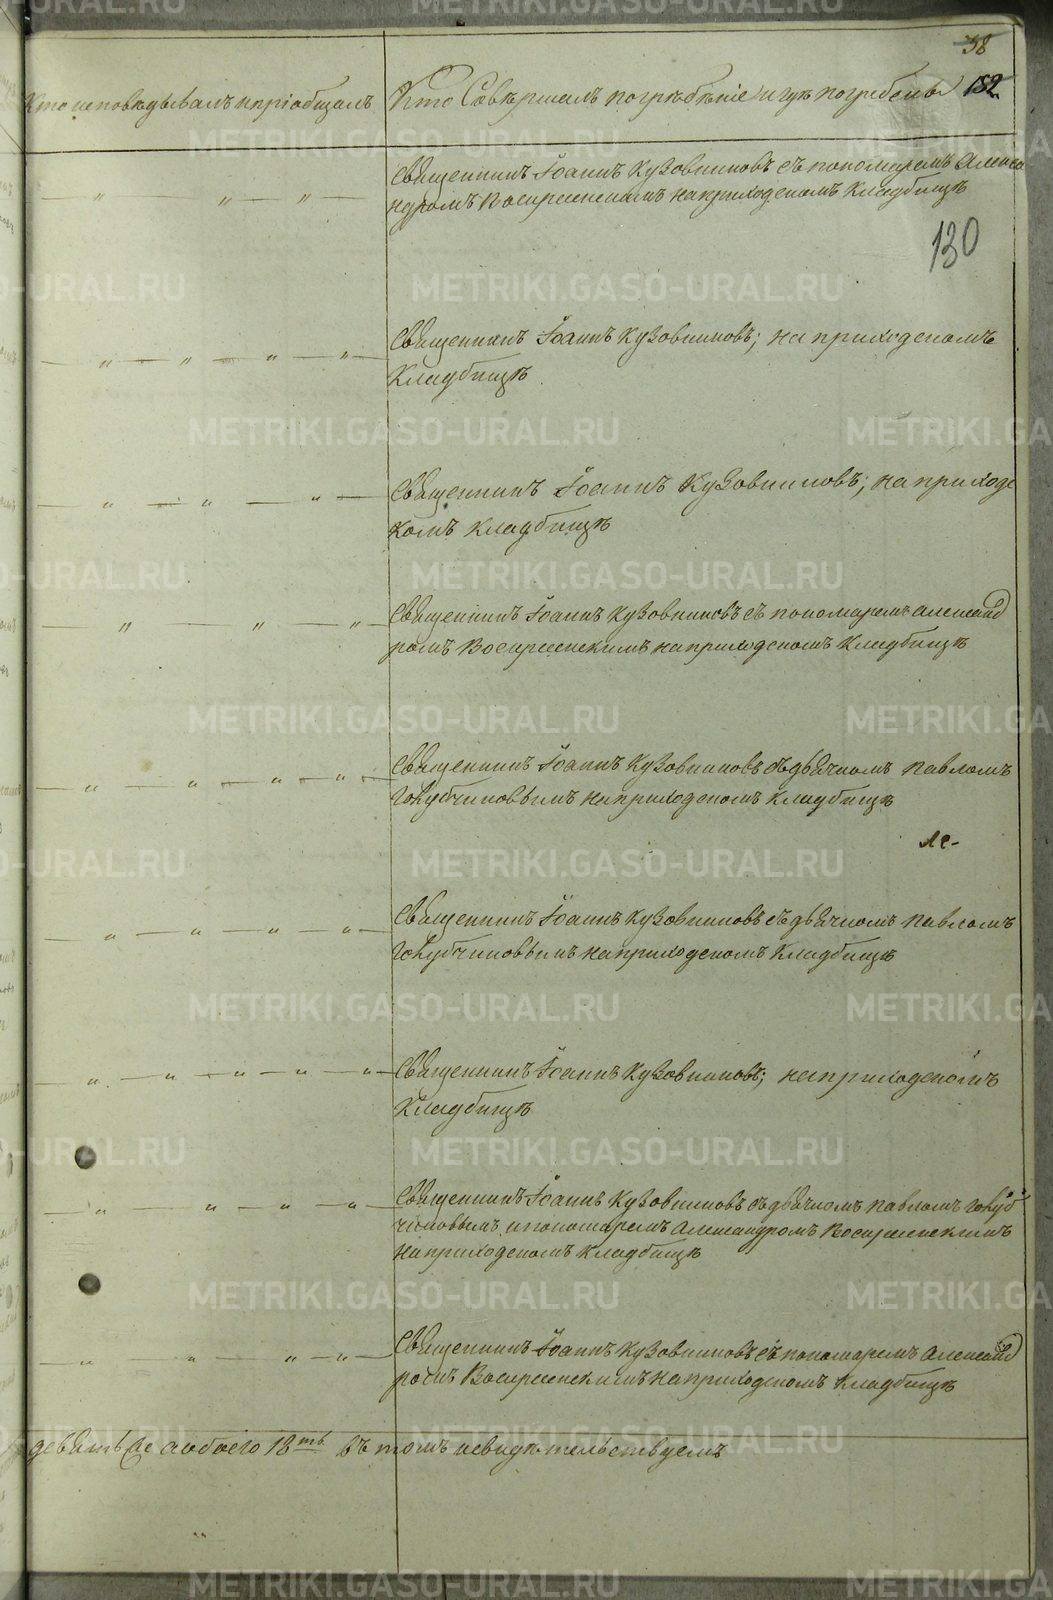 38
152
Кто исповѣдывалъ и пріобщалъ
Кто Совѣршалъ погрѣбѣніе и гдѣ погребены
Священникъ Іоаннъ Кузовниковъ съ пономаремъ Алекса
ндромъ Воскресенскимъ на приходскомъ кладбищѣ
130
Священникъ Іоаннъ Кузовниковъ; на приходскомъ
Кладбищѣ
Священникъ Іоаннъ Кузовниковъ; на приходс
комъ кладбищѣ
Священникъ Іоаннъ Кузовниковъ съ пономаремъ Александ
ромъ Воскресенскимъ на приходскомъ Кладбищѣ
Священникъ Іоаннъ Кузовниковъ съ дьячкомъ Павломъ
Голубчиковымъ на приходскомъ кладбищѣ
ле-
Священникъ Іоаннъ Кузовниковъ съ дьячкомъ Павломъ
Голубчиковымъ на приходскомъ Кладбищѣ
Священникъ Іоаннъ Кузовниковъ; на приходскомъ
Кладбищѣ
Священникъ Іоаннъ Кузовниковъ съ дьячкомъ Павломъ Голуб
чиковымъ и пономаремъ Александромъ Воскресенскимъ
на приходскомъ кладбищѣ
Священникъ Іоаннъ Кузовниковъ съ пономаремъ Александ
ромъ Воскресенскимъ на приходскомъ Кладбищѣ
девять, а обоего 18ть въ томъ и свидѣтельствуемъ
METRIKI.GASO-URAL.RU